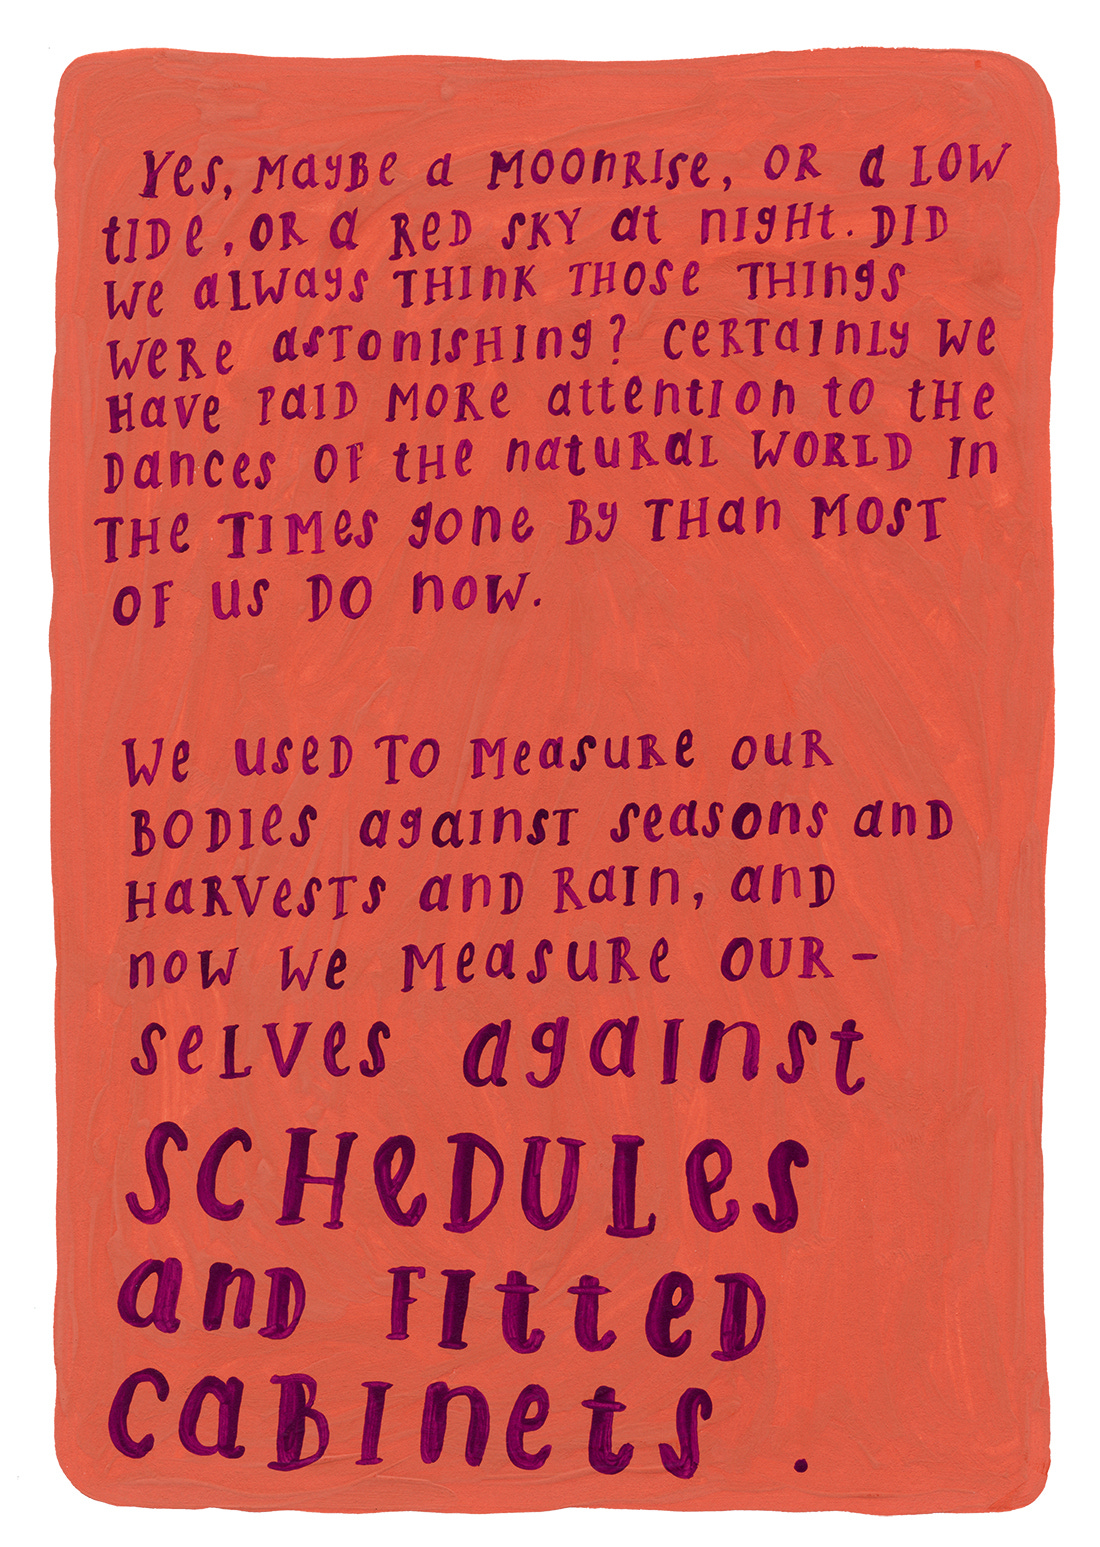 Yes, maybe a moonrise, or a low
tide, or a red sky at night. Did
we always think those things
were astonishing? Certainly we
have paid more attention to the
dances of the natural world in
the times gone by than most
of us do now.
We used to measure our
bodies against seasons and
harvests and rain, and
now we measure our-
selves against
schedules
and fitted
cabinets .